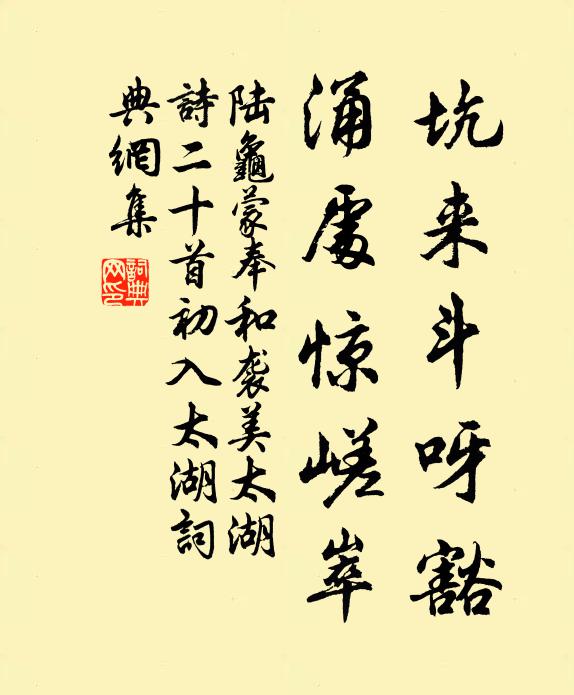 坑来斗呀豁
涌處惊嵯崒
陆龜蒙奉和袭美太湖
詩二十首初入太湖詞
典網集
詞典网印